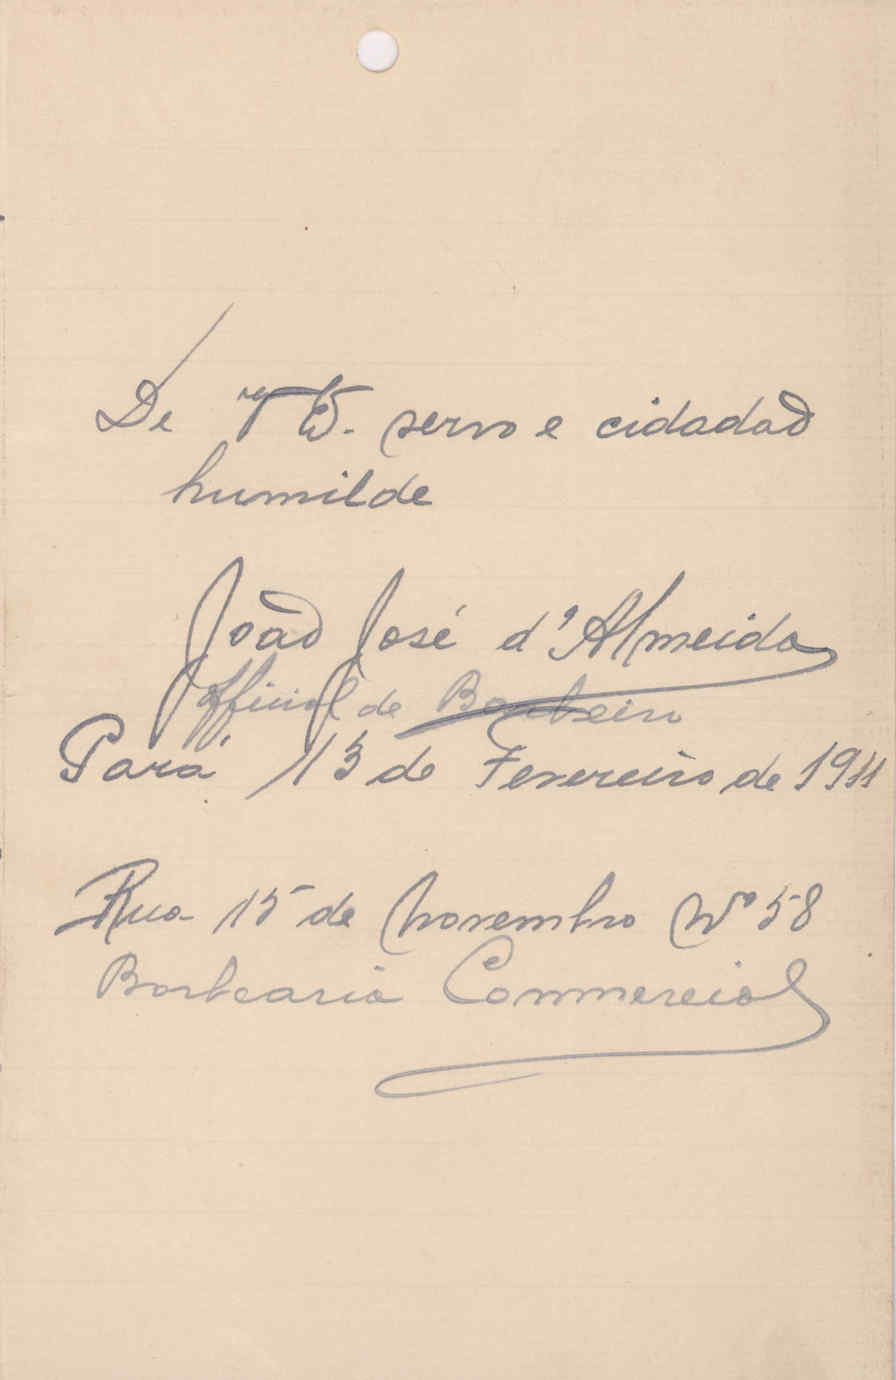 De V Ex. servo e cidadaõ
humilde
Joaõ José d'Almeida
Official de Barbeiro
Pará 13 de Fevereiro de 1911
Rua 15 de Novembro Nº 58
Barbearia Commercial